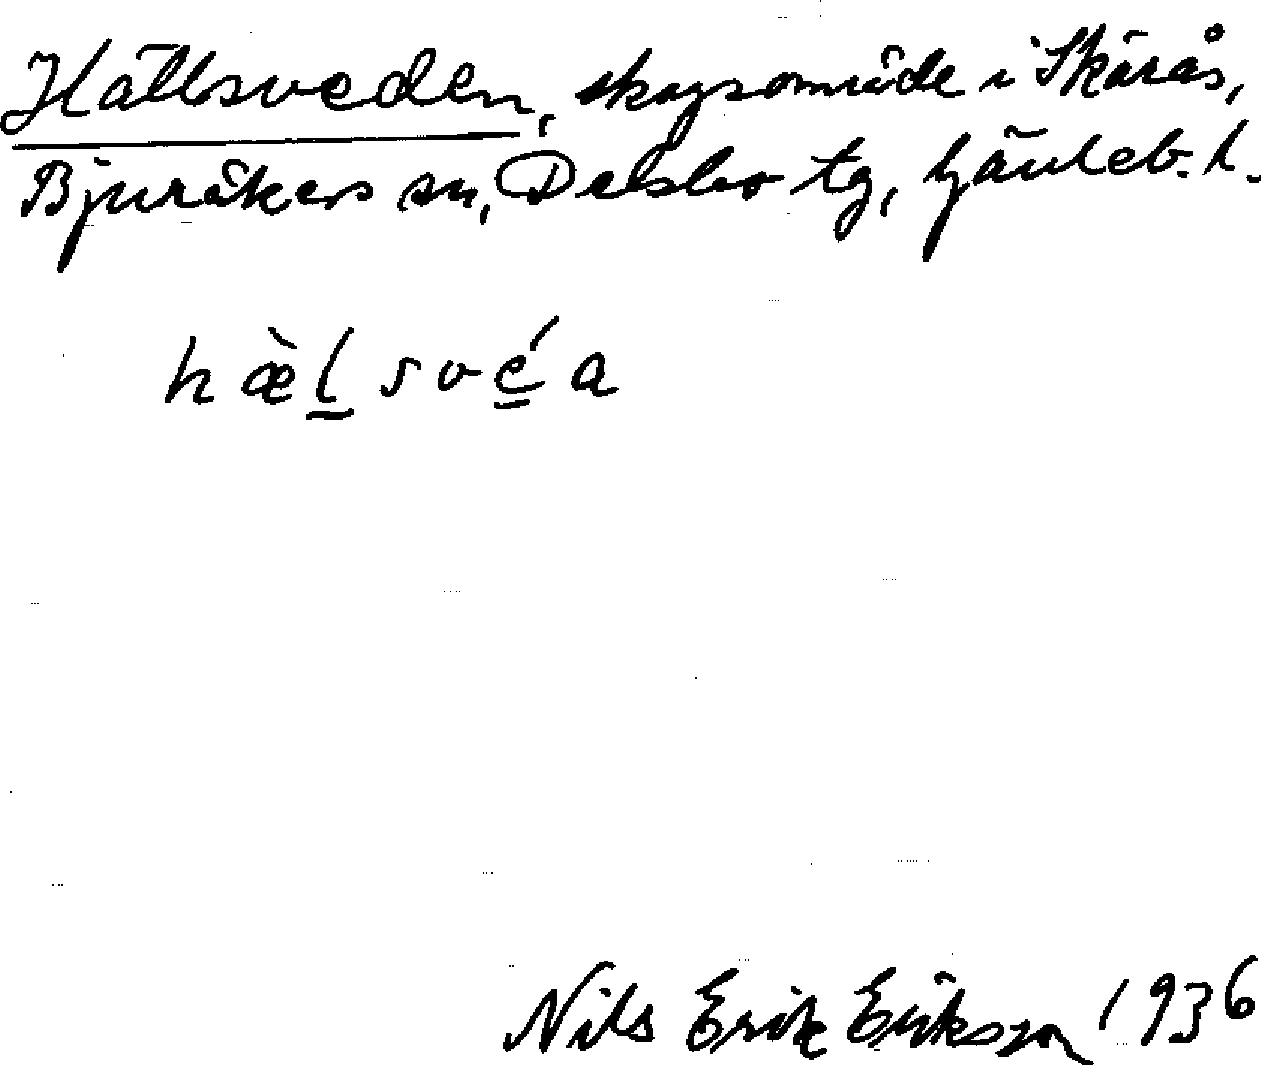 Hällsveden, skogsområde i Skärås,
Bjuråkers sn, Delsbo tg, Gävleb. l.
hæ̀l̲své̲a
Nils Erik Eriksson 1936